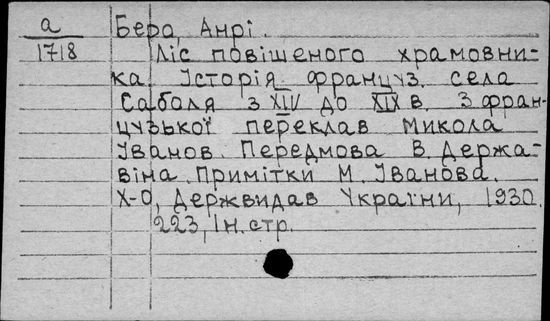 а
1718
Беро, Анрі.
Ліс повішеного храмовни-
ка. Історія француз. села
Саболя з XIV до XIX в. З фран-
цузької переклав Микола
Іванов. Передмова В. Держа-
віна. Примітки М. Іванова.
Х-О, Держвидав України, 1930.
223, 1н. стр.